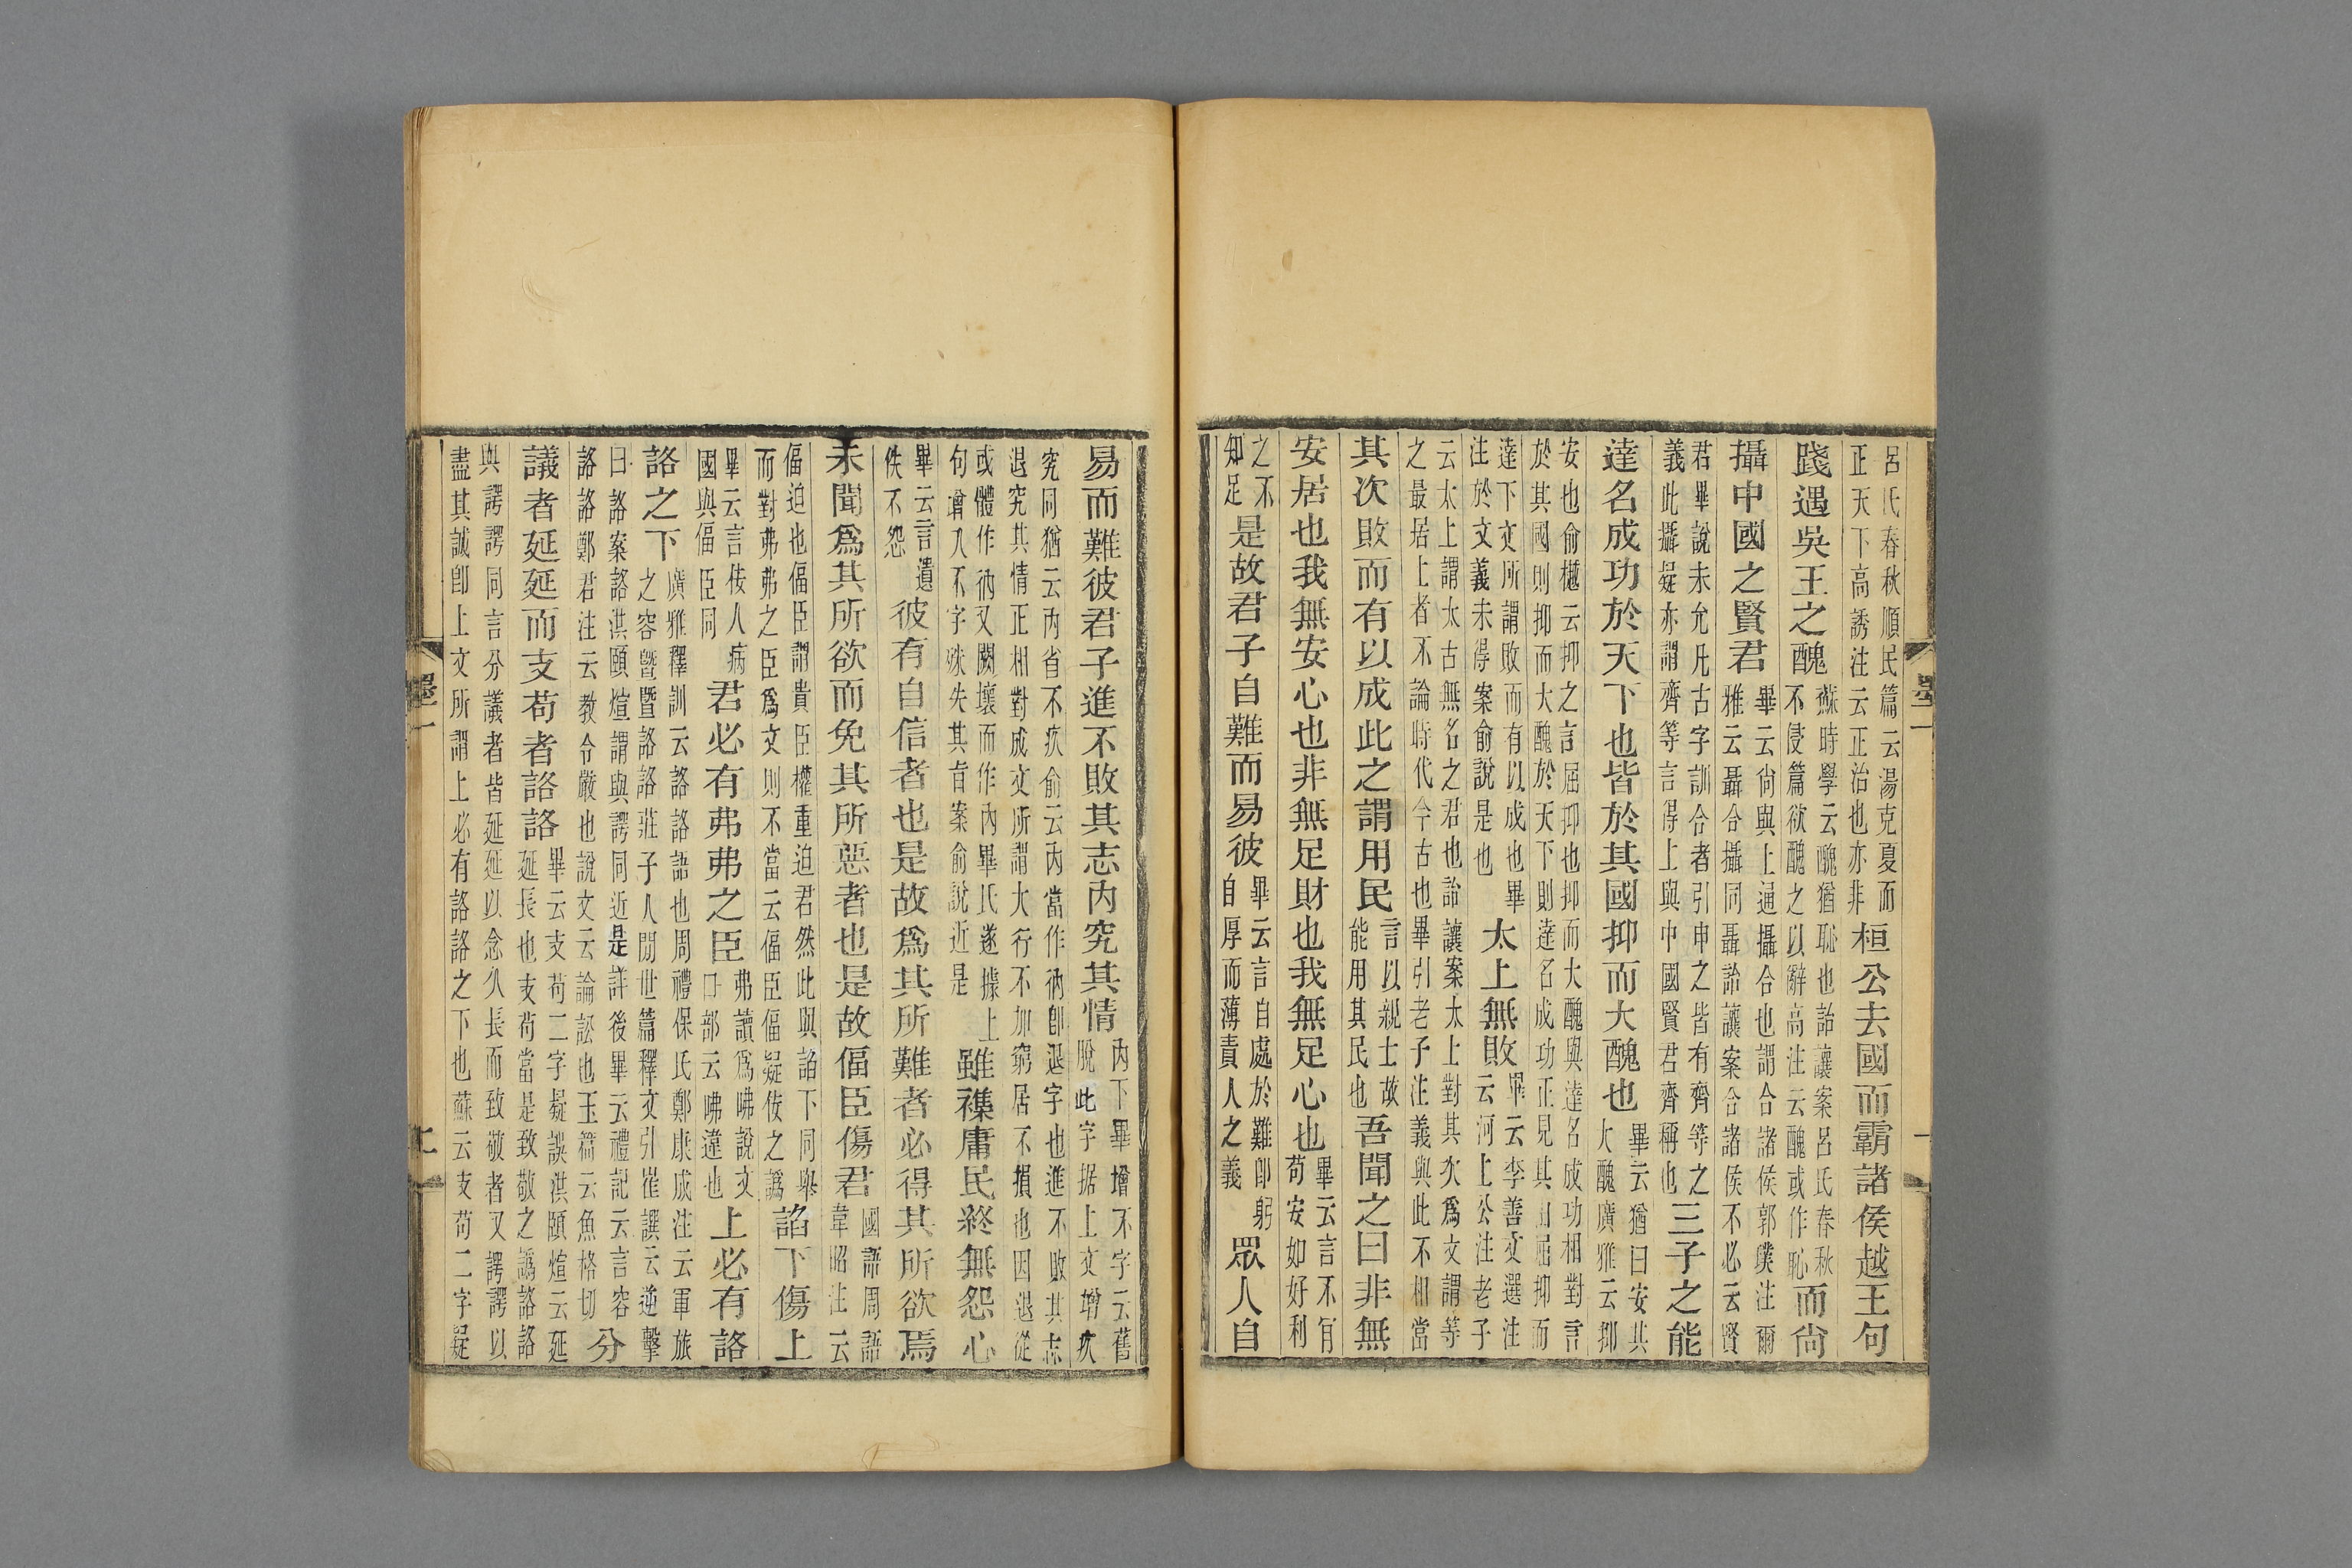 呂氏春秋順民篇云湯克夏而正天下高誘注云正治也亦非桓公去國而霸諸侯越王句
踐遇吳王之醜蘇時學云醜猶恥也詒讓案呂氏春秋不侵篇欲醜之以辭高注云醜或作恥而尚
攝中國之賢君畢云尚與上通攝合也謂合諸侯郭璞注爾雅云聶合攝同聶詒讓案合諸侯不必云賢
君畢說未允凡古字訓合者引申之皆有齊等之義此攝疑亦謂齊等言得上與中國賢君齊稱也三子之能
達名成功於天下也皆於其國抑而大醜也畢云猶曰安其大醜廣雅云抑
安也俞樾云抑之言屈抑也抑而大醜與達名成功相對言於其國則抑而大醜於天下則達名成功正見其由屈抑而
達下文所謂敗而有以成也畢注於文義未得案俞說是也太上無敗畢云李善文選注云河上公注老子
云太上謂太古無名之君也詒讓案太上對其次爲文謂等之最居上者不論時代今古也畢引老子注義與此不相當
其次敗而有以成此之謂用民言以親士故能用其民也吾聞之曰非無
安居也我無安心也非無足財也我無足心也畢云言不肯苟安如好利
之不知足是故君子自難而易彼畢云言自處於難卽躬自厚而薄責人之義眾人自
墨一
易而難彼君子進不敗其志內究其情內下畢增不字云舊脫此字据上文增疚
究同猶云內省不疚俞云內當作衲卽退字也進不敗其志退究其情正相對成文所謂大行不加窮居不損也因退從
或體作衲又闕壞而作內畢氏遂據上句增入不字殊失其旨案俞說近是雖襍庸民終無怨心
畢云言遺佚不怨彼有自信者也是故爲其所難者必得其所欲焉
未聞爲其所欲而免其所惡者也是故偪臣傷君國語周語韋昭注云
偪迫也偪臣謂貴臣權重迫君然此與諂下同舉而對弗弗之臣爲文則不當云偪臣偪疑佞之譌諂下傷上
畢云言佞人病國與偪臣同君必有弗弗之臣弗讀爲咈說文口部云咈違也上必有詻
詻之下廣雅釋訓云詻詻語也周禮保氏鄭康成注云軍旅之容曁曁詻詻莊子人閒世篇釋文引崔譔云逆擊
曰詻案詻洪頤煊謂與諤同近是詳後畢云禮記云言容詻詻鄭君注云教令嚴也說文云論訟也玉篇云魚格切分
議者延延而支苟者詻詻畢云支苟二字疑誤洪頤煊云延延長也支苟當是致敬之譌詻詻
與諤諤同言分議者皆延延以念久長而致敬者又諤諤以盡其誠卽上文所謂上必有詻詻之下也蘇云支苟二字疑
墨一